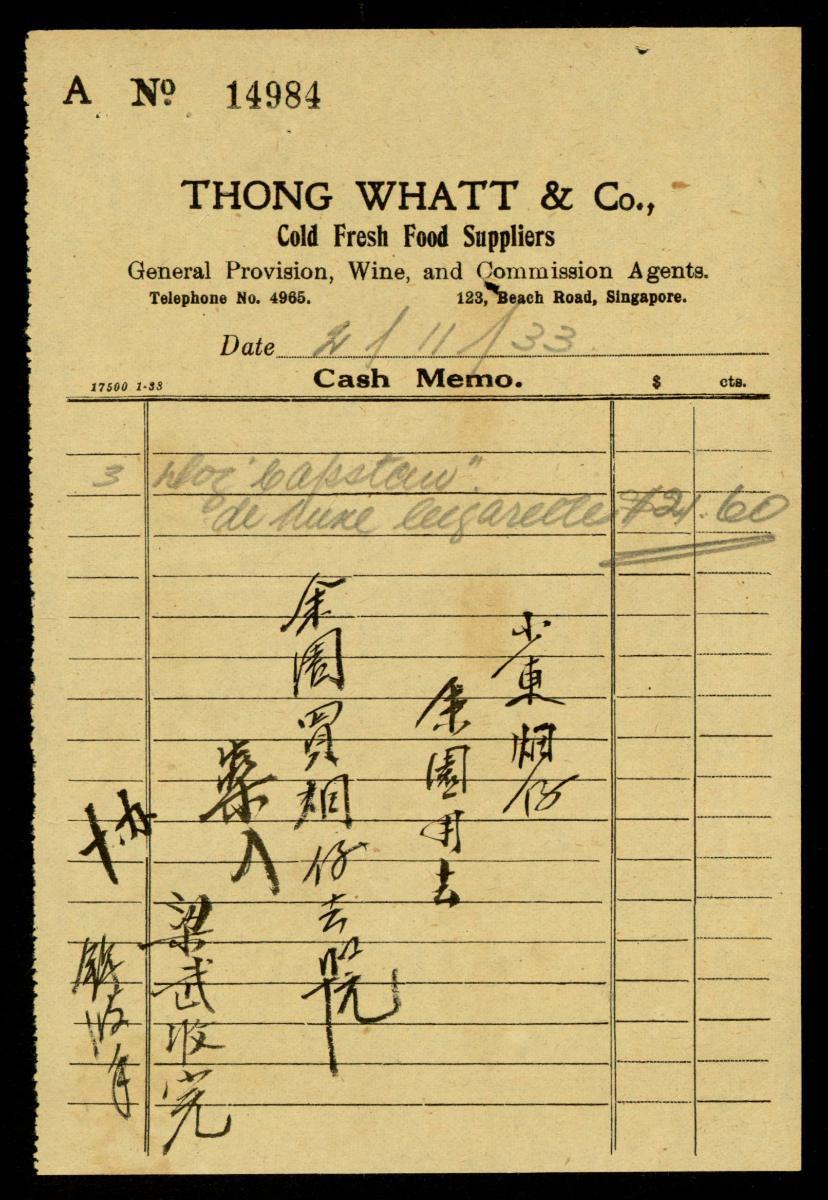 A No 14984
THONG WHATT & Co.,
Cold Fresh Food Suppliers
General Provision, Wine, and Commission Agents.
Telephone No. 4965. 123, Beach Road, Singapore.
Date 2/11/33.
17500 1-33 Cash Memo. $ cts.
3 Doz "Capstan"
de Luxe Cigarettes $21.60
少東烟仔
余園用去
余園買烟仔去
入
協
梁武收完